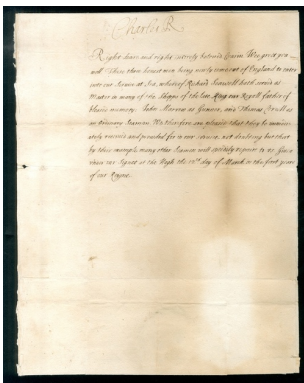 Charles R
Right deare and right entirely beloved Cousin Wee greet you
well. These three honest men being newly come out of England to enter
into our Service at Sea, whereof Richard hath served as
Master in many of the Shipps of the late King our Royall Father of
blessed memory, John as Gunner, and Thomas as
an ordinary Seaman. We therefore are pleased that they be immedi-
ately received and provided for in our service, not doubting but that
by their example many other Seamen will repaire to us. Given
under our Signet at the Hagh the 12th day of March in the first yeare
of our Raigne.